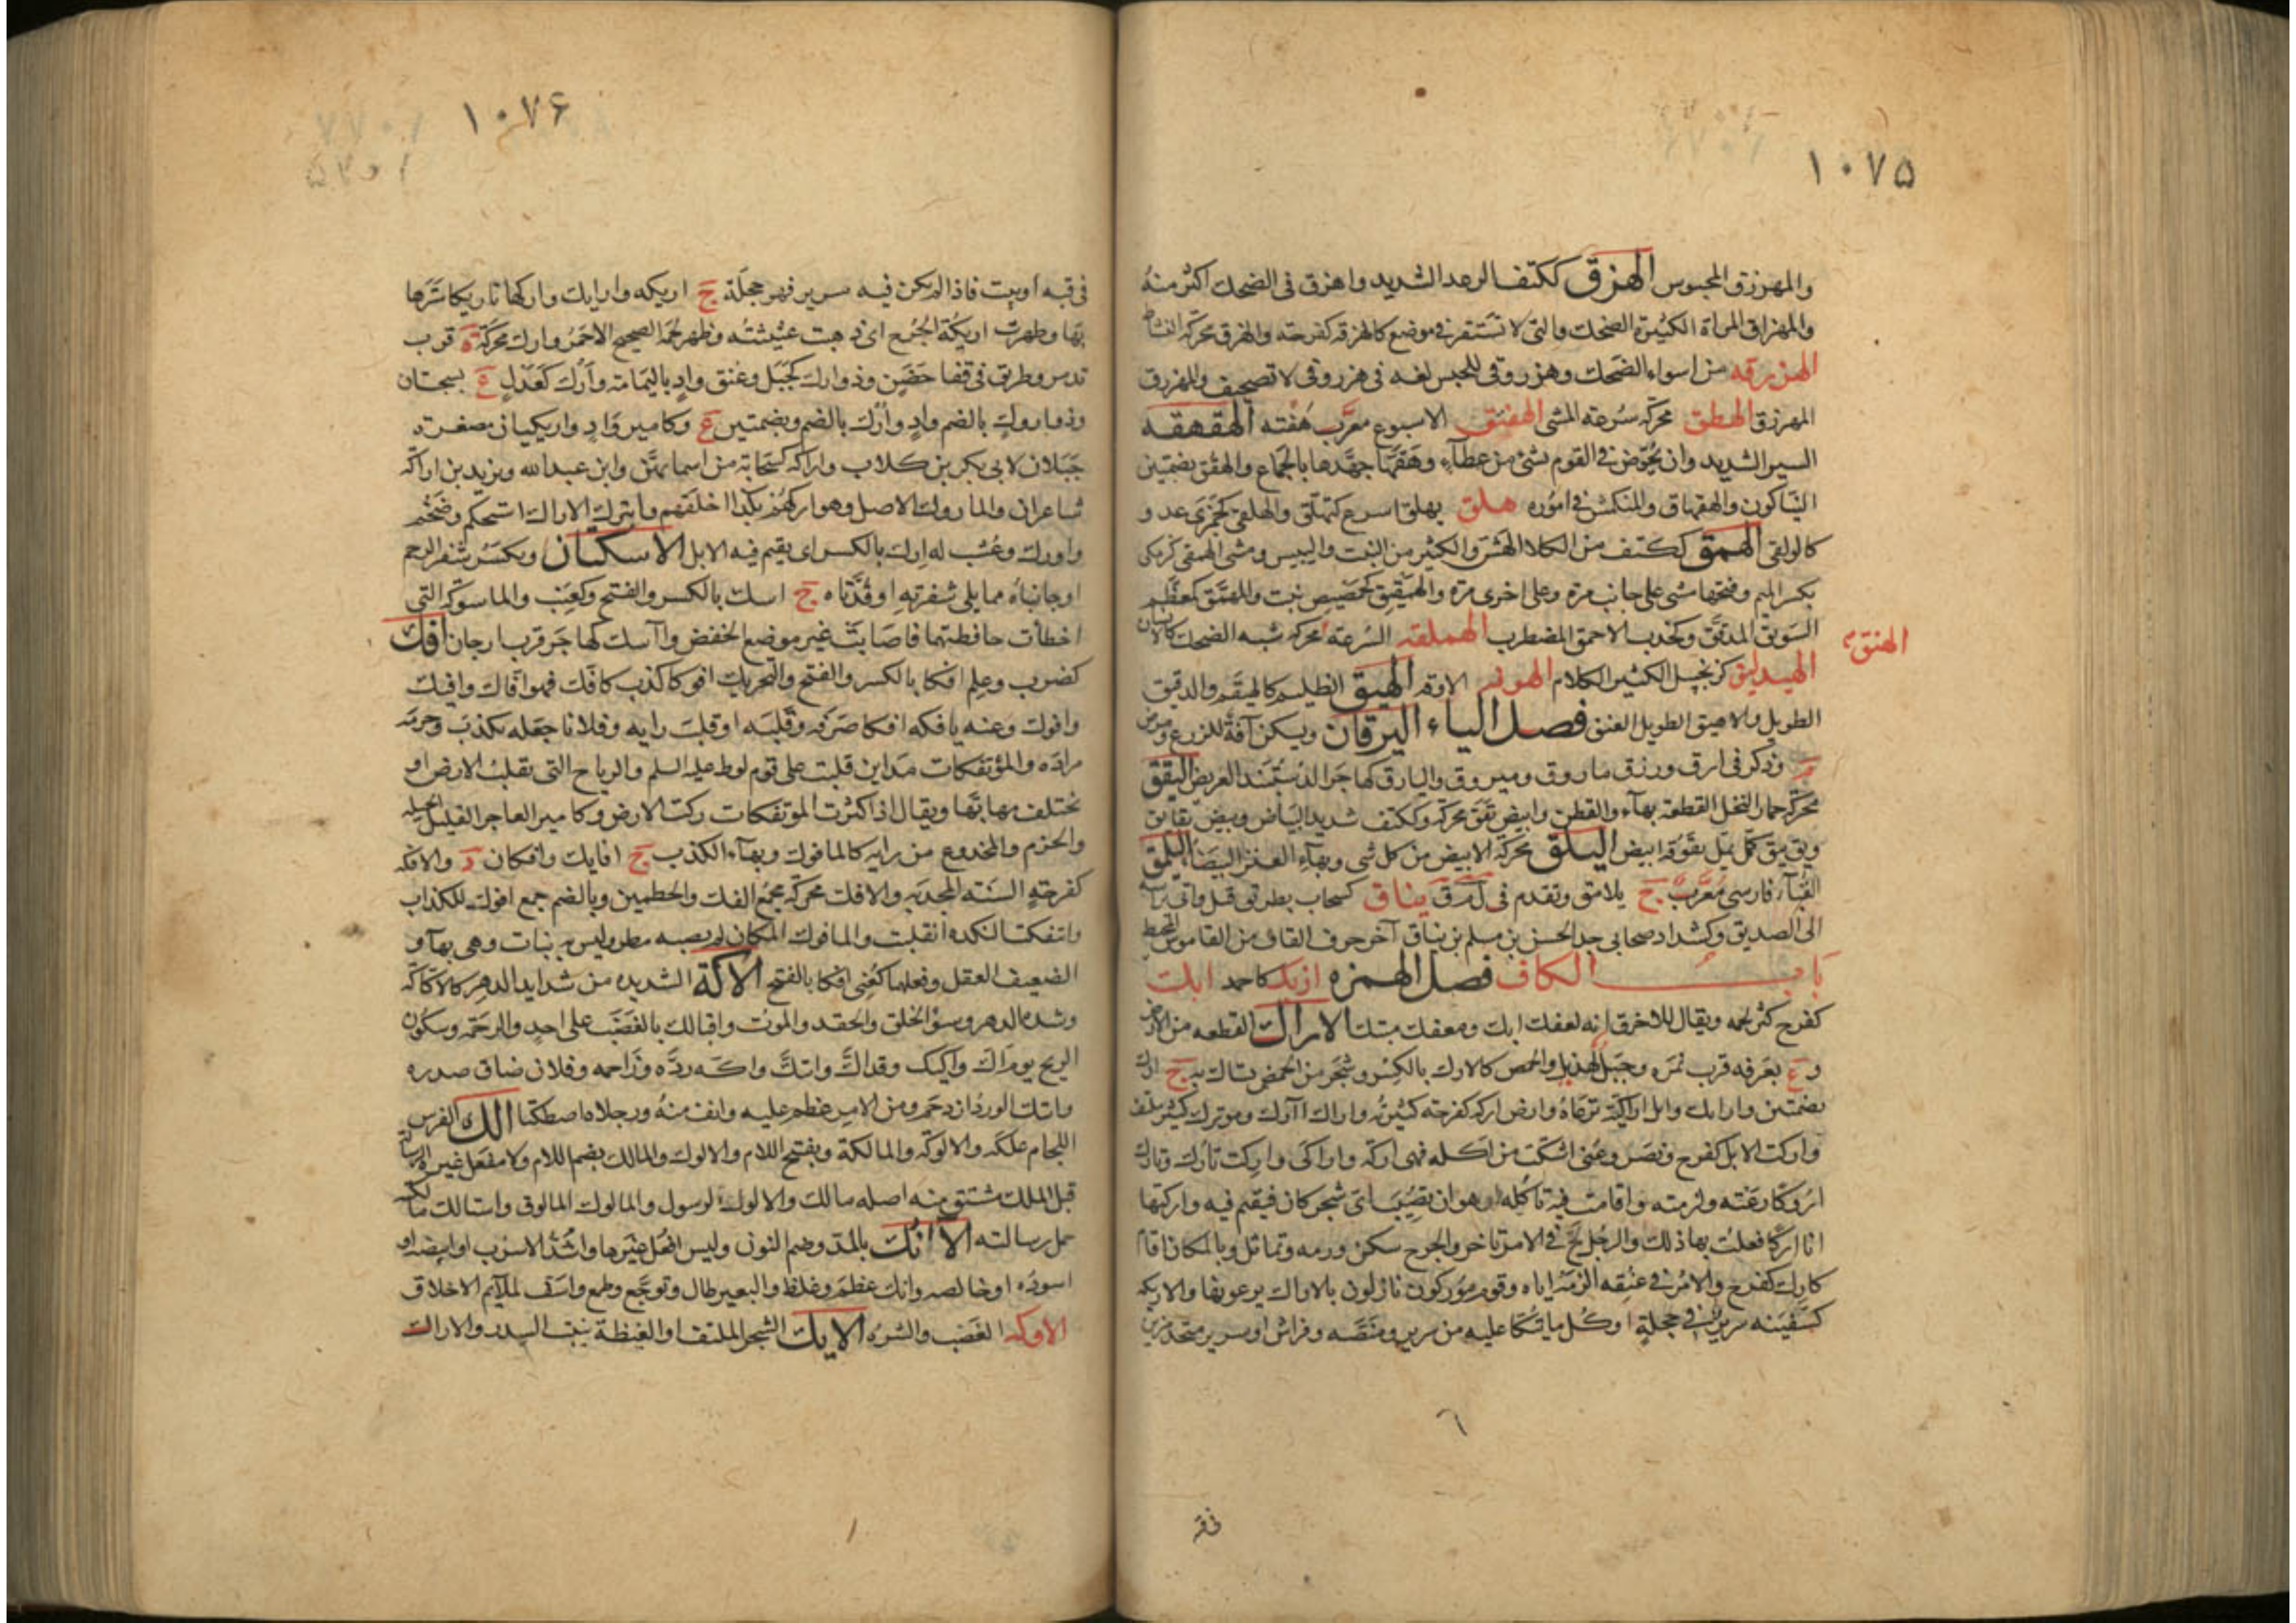 ١٠٧۵
والمهزرق المحبوس الهزق ككتف الرعد الشديد واهزق فى الضحك اكثر منهُ
والمهزاق المراة الكثيرة الضحك والتى لا تستقر فى موضع كالهزقه كفرحته والهزق محركه النشاط
الهزرقه من اسواء الضحك وهزروقى للحبس لغه فى هرزوقى لا تصحيف والمهزرق
المهرزق الهطق محركه سُرعة المشى الهفتق الاسبوع معرَّب هَفْته الهقهقه
السير الشديد وان يخوض فى القوم بشئ من عطآء وهَقَها جهَّدها بالجماع والهقق بضمتين
النيّاكون والهقهاق والمنكمش فى اموره هلق يهلق اسرع كتهلّق والهلقى كجَمَزى عدو
كالولقى الهمق ككتف من الكلا الهشّ والكثير من النبت واليبيس ومشى الهمقى كزمكى
بكسر الميم وفتحها مشى على جانب مرة وعلى اخرى مرة والهمقيق كحمصيص نبت والمهمّق كمعظّم
السَّويق المدقَّق وكخدب الاحمق المضطرب الهملقه السُرعة محركه شبه الضحك كالاهناق
الهنق
الهيدليق كزنجبيل الكثير الكلام الهوقه الاوقه الهيق الظليم كالهيقم والدقيق
الطويل والاهيق الطويل العنق فصل الياء اليرقان ويسكن آفة للزرع ومرض
م وذكر فى ارق ورزق ماروق وميروق واليارق كهاجر الدستبند العريض اليقق
محركه جمار النخل القطعة بهآء والقطن وابيض يقق محركه وككتف شديد البياض وبيض يقايق
ويق يق كمل يمل يقوقة ابيض اليلق محركة الابيض من كل شى وبهآء العنز البيضآء اليلمق
القبآء فارسى مُعرَّب ج يلامق وتقدم فى ل م ق يناق كسحاب بطريق قتل واتى براسه
الى الصديق وكشداد صحابى جد الحسن بن مسلم بن يناق آخر حرف القاف من القاموس المحيط
باب الكاف فصل الهمزه ازبك كاحمد ابك
كفرح كثر لحمه ويقال للاخرق انه لعفك ابك ومعفك مبتك الاراك القطعه من الارض
و ع بعرفه قرب نمرة وجبل لهذيل والحمص كالارك بالكسر وشجر من الحمض يستاك به ج ارك
بضمتين وارايك وابل اراكية ترعاهُ وارض اركه كفرحته كثيرته واراك آارك وموترك كثير ملتف
واركت الابل كفرح ونصر وعُنى اشتكت من اكله فهى اركه واراكى واركت تارك وتارك
اروكا رعته ولزمته واقامت فيه تاكله او هو ان يُصيب اى شجر كان فيقيم فيه واركتها
انا اركا فعلت بها ذلك والرجل لج فى الامر تاخر والجرح سكن ورمه وتماثل وبالمكان اقام
كارك كفرح والامر فى عنقه الزمه اياه وقوم مؤركون نازلون بالاراك يرعونها والاريكه
كسفينه سرير فى حجلة او كُل ما يتكا عليه من سرير ومنصَّه وفراش او سرير متخذ مزين
فى قبه
١٠٧۶
فى قبه او بيت فاذا لم يكن فيه سرير فهو حجلة ج اريكه وارايك واركها تاريكا سترها
بها وظهرت اريكة الجُرح اى ذهبت غثيثته وظهر لحمه الصحيح الاحمر وارك محركة ة قرب
تدمر وطريق فى قفا حَضَن وذو ارك كجَبَل وعُنق وادٍ باليمامة وارك كعدل ع بسجستان
وذو اروك بالضم وادٍ وارك بالضم وبضمتين ع وكامير وادٍ واريكيان مصغرة
جَبَلان لابى بكر بن كلاب واراكه كسحابة من اسمائهنّ وابن عبدالله ويزيد بن اراكه
شاعران والماروك الاصل وهو اركهم بكذا اخلقهم وايترك الاراك استحكم وضخم
واورك وعشب له ارك بالكسر اى يقيم فيه الابل الاسكتان ويكسر شفر الرحم
او جانباه مما يلى شفرتيه او قُذَّتاه ج اسك بالكسر والفتح وكعنب والماسوكه التى
اخطأت حافظتها فاصابت غير موضع الخفض وآسك كهاجَر قرب ارجان افك
كضرب وعلم افكا بالكسر والفتح والتحريك افوكا كذب كافّك فهو افّاك وافيك
وافوك وعنه يافكه افكا صَرَفه وقلبَه او قلبَ رايه وفلانا جعله يكذب وحرمه
مرادَه والمؤتفكات مداين قلبت على قوم لوط عليه السلم والرياح التى تقلب الارض او
تختلف مهابّها ويقال اذا كثرت المؤتفكات زكت الارض وكامير العاجز القليل الحيله
والحزم والمخدوع من رايه كالمافوك وبهآء الكذب ج افايك وافكان د والافكه
كفرحته السَنَته المجدبه والافك محركه مجمع الفك والخطمين وبالضم جمع افوك للكذاب
وائتفكت البلده انقلبت والمافوك المكان لم يصبه مطر وليس به نبات وهى بهآء و
الضعيف العقل وفعلهما كعُنى افكا بالفتح الاكّة الشديده من شدايد الدهر كالاكّاكه
وشده الدهر وسوُ الخُلق والحقد والموت واقبالك بالغَضَب على احدٍ والزحمه وسكون
الريح يوم اكّ واكيك وقد اكّ وائتكّ واكّه ردَّه وزاحمه وفلان ضاق صدره
وائتك الورد ازدحم ومن الامر عظم عليه وانف منهُ ورجلاه اصطكتا الك الفرس
اللجام علكه والالوكه والمالكة وبفتح اللام والالوك والمالك بضم اللام ولا مفعل غيره الرسالة
قيل الملك مشتق منه اصله مالك والالوك الرسول والمالوك المالوق واستالك مالكته
حمل رسالته الآنُك بالمد وضم النون وليس افعُل غيرها واشُدّ الاسرب او ابيضه او
اسوده او خالصه وانك عظم وغلظ والبعير طال وتوجّع وطمع واسَف لملآيم الاخلاق
الاوكه الغَضَب والشره الايك الشجر الملتف او الغيظة تنبت السدر والاراك